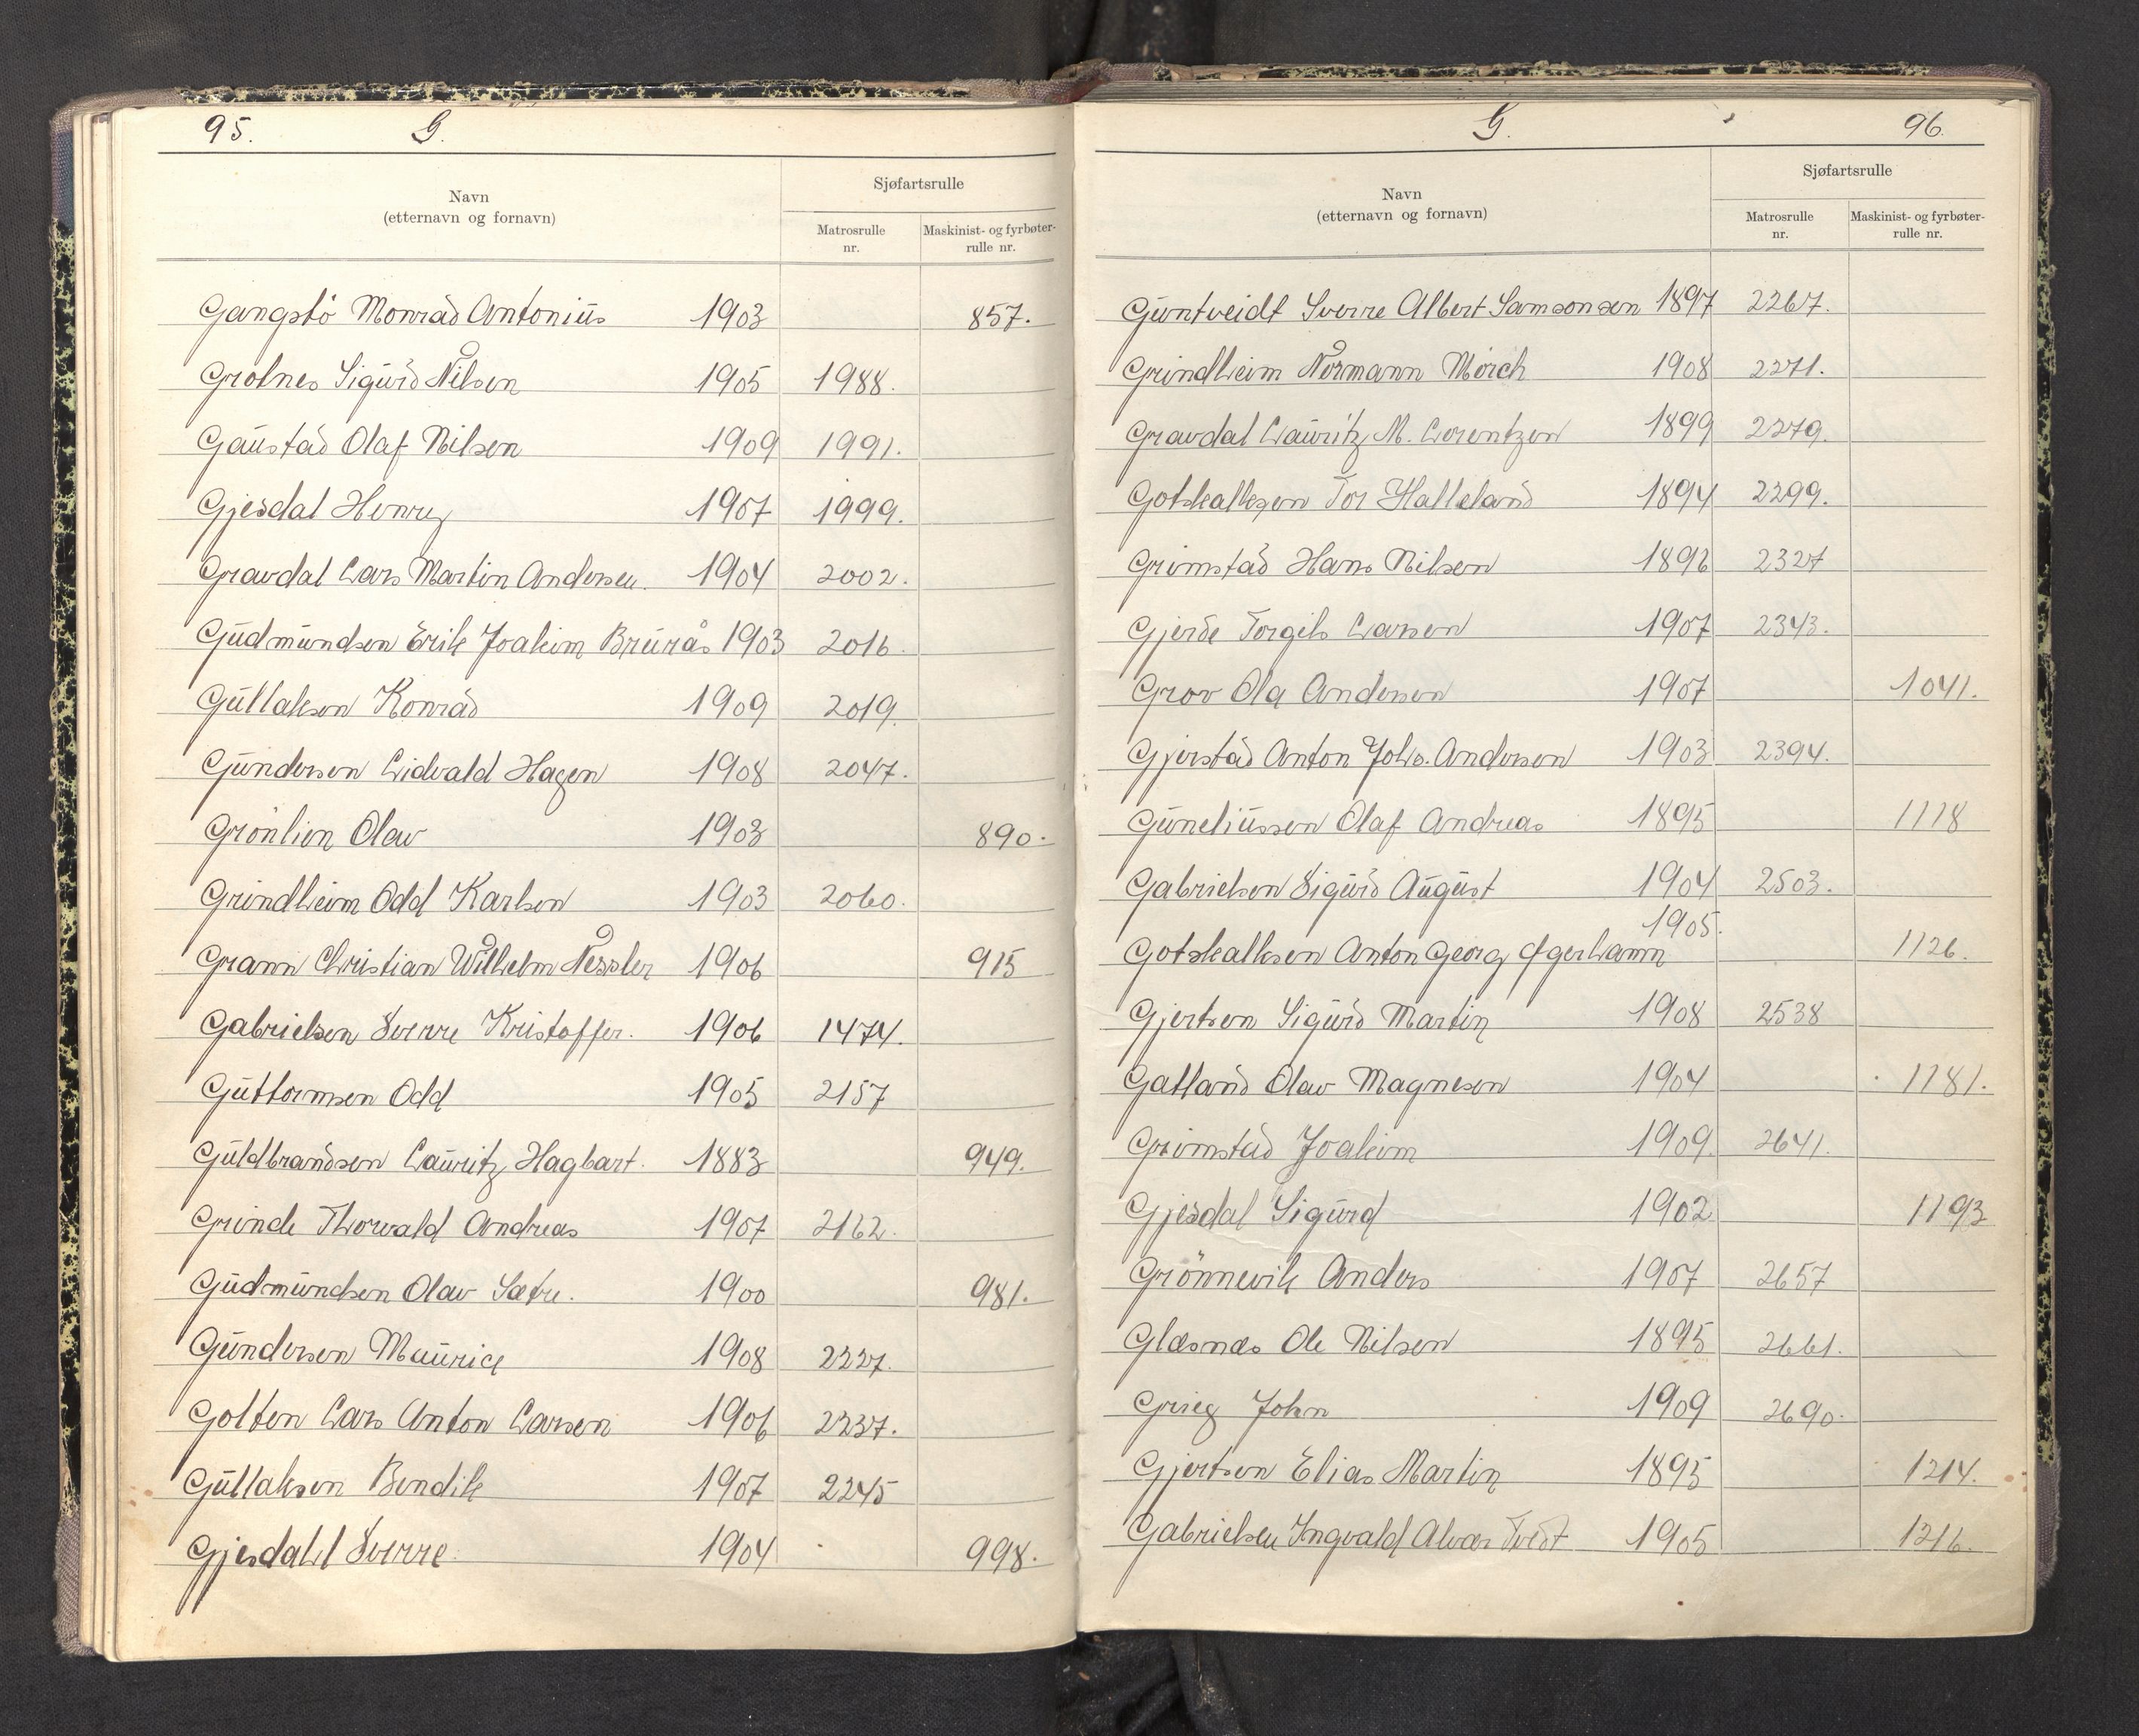 95. G.
Navn
(etternavn og fornavn)
Sjøfartsrulle
Matrosrulle nr.
Maskinist- og fyrbøter-rulle nr.
Gangstö Monrad Antonius 1903 857.
Grotnes Sigurd Nilsen 1905 1988.
Gaustad Olaf Nilsen 1909 1991.
Gjesdal Henry 1907 1999.
Gravdal Lars Martin Andersen. 1904 2002.
Gudmundsen Erik Joakim Brurås 1903 2016.
Gullaksen Konrad 1909 2019.
Gundersen Lidvald Hagen 1908 2047.
Grönlien Olav 1903 890.
Grindheim Odd Karlsen 1903 2060.
Grann Christian Wilhelm Nessler 1906 915
Gabrielsen Sverre Kristoffer. 1906 1474.
Guttormsen Odd 1905 2157
Guldbrandsen Lauritz Hagbart. 1883 949.
Grinde Thorvald Andreas 1907 2162.
Gudmundsen Olav Sætre. 1900 981.
Gundersen Maurice 1908 2227.
Golten Lars Anton Larsen 1906 2237.
Gullaksen Bendik 1907 2245
Gjesdahl Sverre. 1904 998.
G. 96.
Navn
(etternavn og fornavn)
Sjøfartsrulle
Matrosrulle nr.
Maskinist- og fyrbøter-rulle nr.
Guntveidt Sverre Albert Samsonsen 1897 2267.
Grindheim Normann Mörch 1908 2271.
Gravdal Lauritz M. Lorentzen 1899 2279.
Gotskalksen Tor Halleland 1894 2299.
Grimstad Hans Nilsen 1892 2327
Gjerde Torgils Larsen 1907 2343.
Grov Ola Andersen 1907 1041.
Gjerstad Anton Johs. Andersen 1903 2394.
Guneliussen Olaf Andreas 1895 1118
Gabrielsen Sigurd August 1904 2503.
Gotskalksen Anton Georg Ågerhamn 1905. 1126.
Gjertsen Sigurd Martin 1908 2538
Gatland Olav Magnesen 1904 1181.
Grimstad Joakim 1909 2641.
Gjesdal Sigurd 1902 1193
Grönnevik Anders 1907 2657
Glæsnæs Ole Nilsen 1895 2661.
Grieg John 1909 2690.
Gjertsen Elias Martin 1895 1214.
Gabrielsen Ingvald Alvær Tvedt 1905 1216.